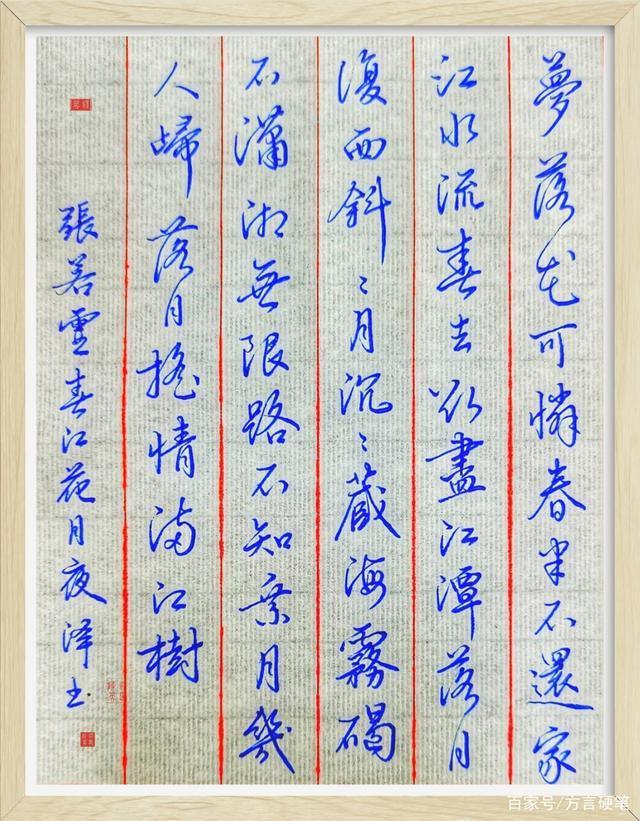 夢落花可憐春半不還家
江水流春去欲盡江潭落月
復西斜〻月沉〻蔵海霧碣
石瀟湘無限路不知乘月幾
人歸落月搖情滿江樹
張若虛春江花月夜澤土
百家号/方言硬笔